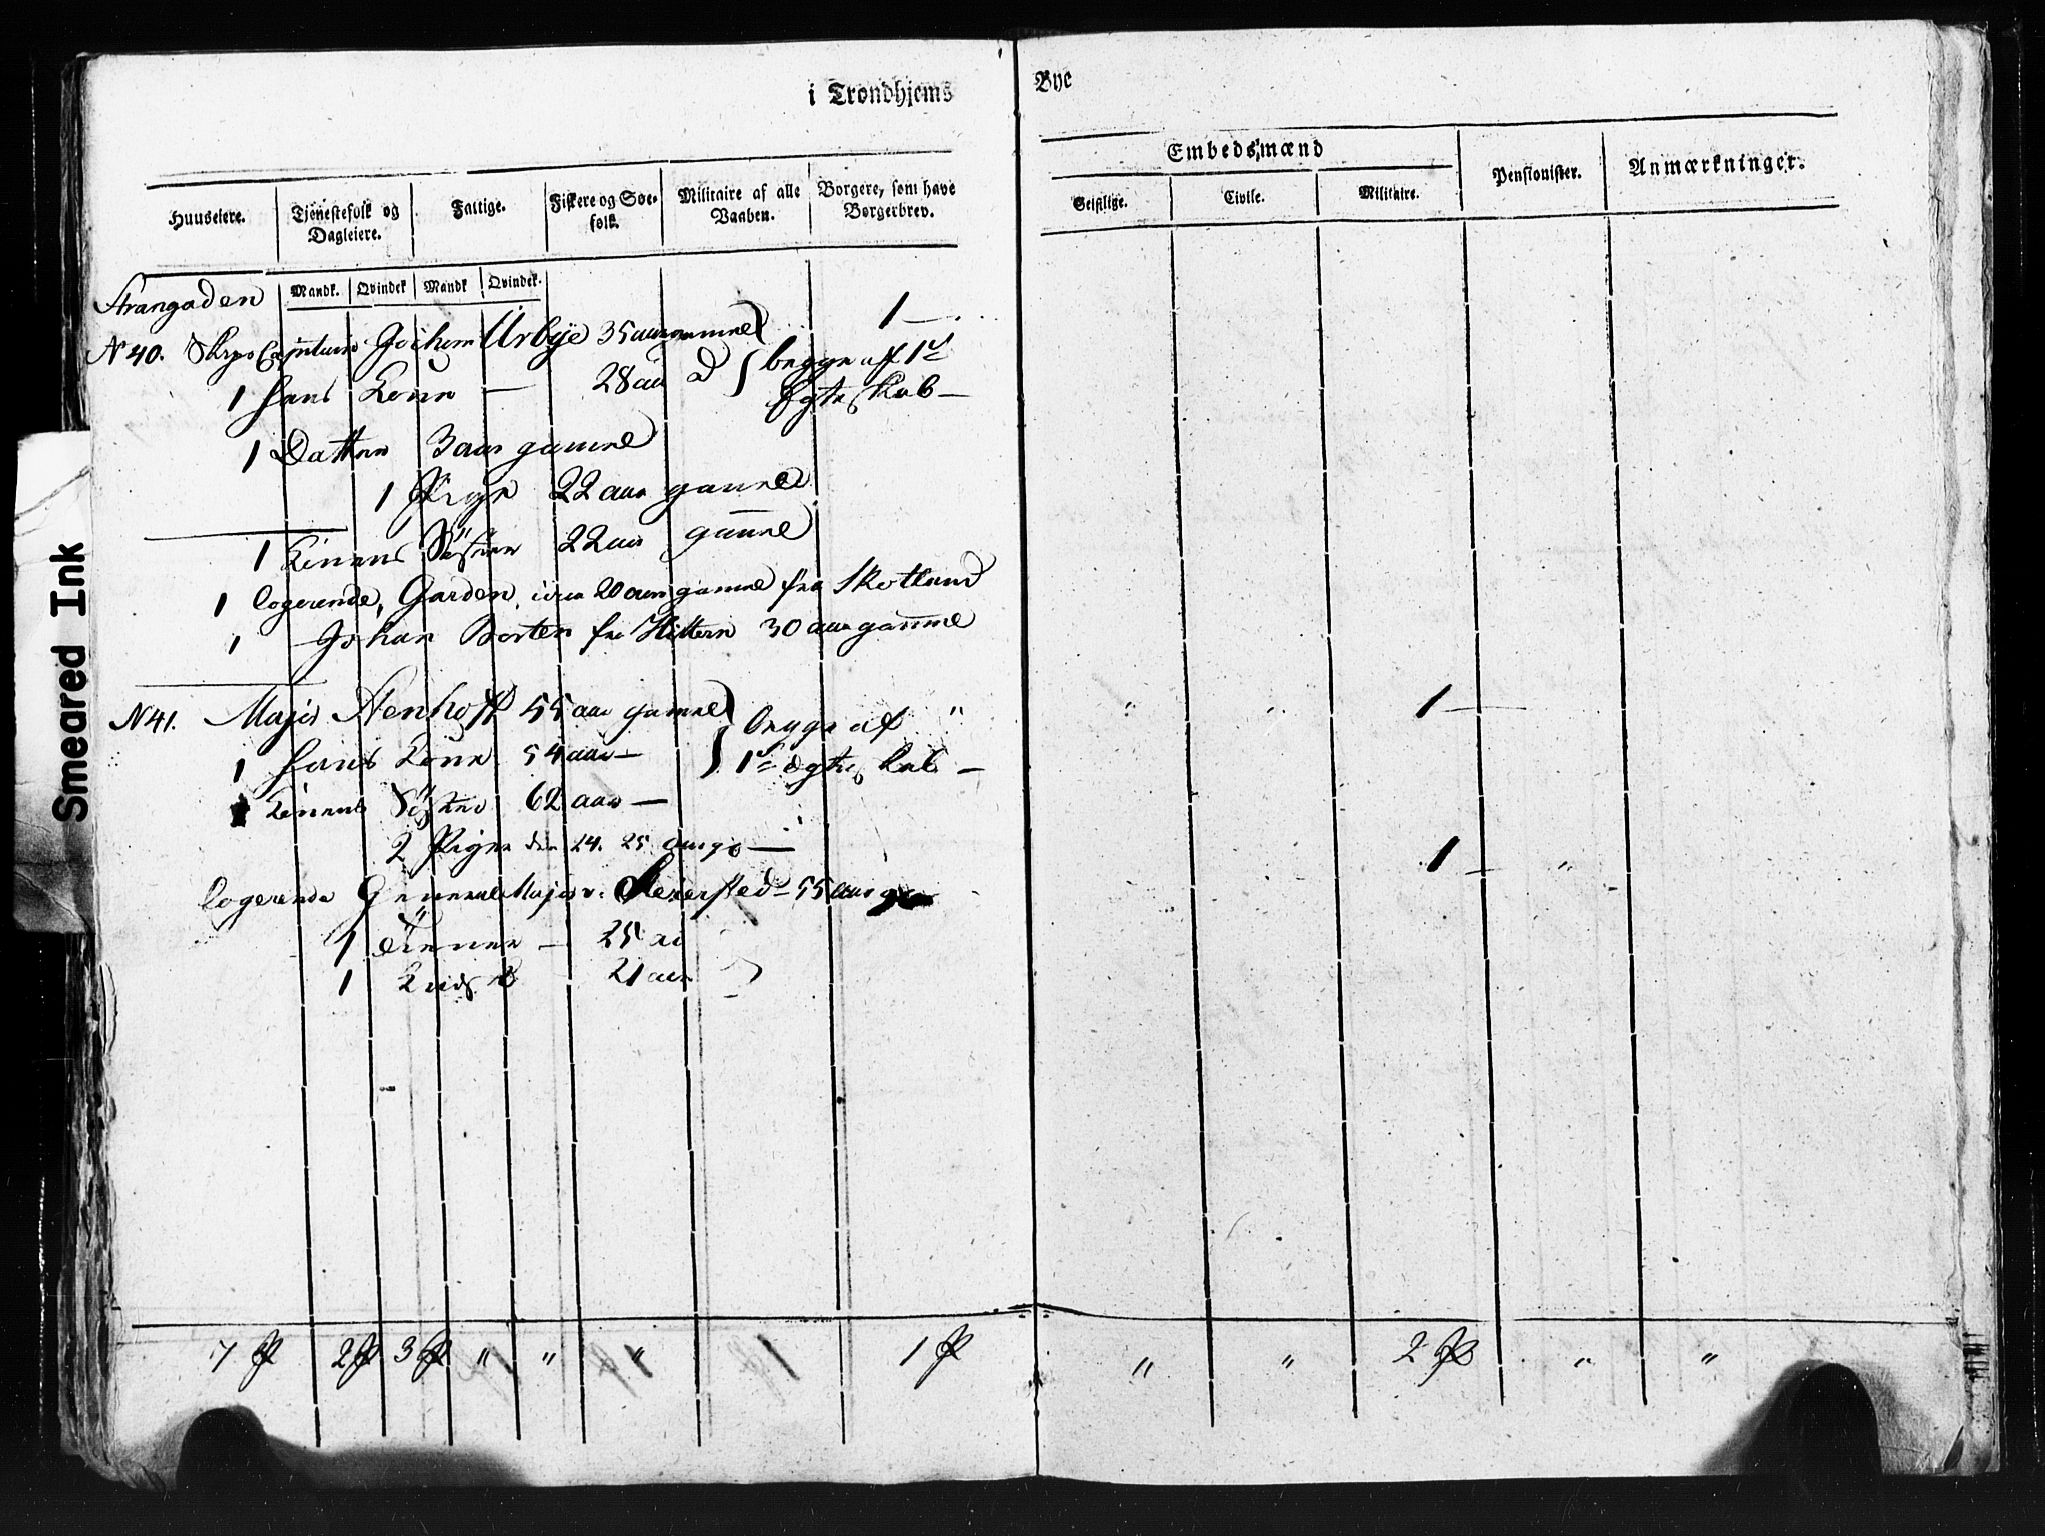 i Trondhjems Bye
Huuseiere. Tjenestefolk og Dagleiere. Fattige. Fiskere og Søefolk. Militaire af alle Vaaben. Borgere, som have Borgerbrev. Embedsmænd Pensionister. Anmærkninger.
Geistlige. Civile. Militaire.
Mandk. Qvindek Mandk Qvindek.
Strangaden
1 —
N 40. Skips Capitain Jochem Ürbye 35 aar gammel } begge af 1ste
1 hans Kone — 28 aar } Egteskab —
1 Datter 3 aar gammel
1 Pige 22 aar gammel
1 Konens Söster 22 aar gammel
1 logerende, Garden, circa 20 aar gammel fra Skotland
1 — Johan Borten fra Hittern 30 aar gammel
N 41. Major Nenhoff 55 aar gammel } begge af " " " 1 —
1 hans Kone 54 aar — } 1ste Egteskab —
1 Konens Söster 62 aar —
2 Piger den 24. 25 aar g. — 1 — "
logerende General Major v. 55 aar
1 Tiener — 25 aar
1 Kudsk 21 aar
7 P 2 P 3 P " " " 1 P " " 2 P " "
Smeared Ink